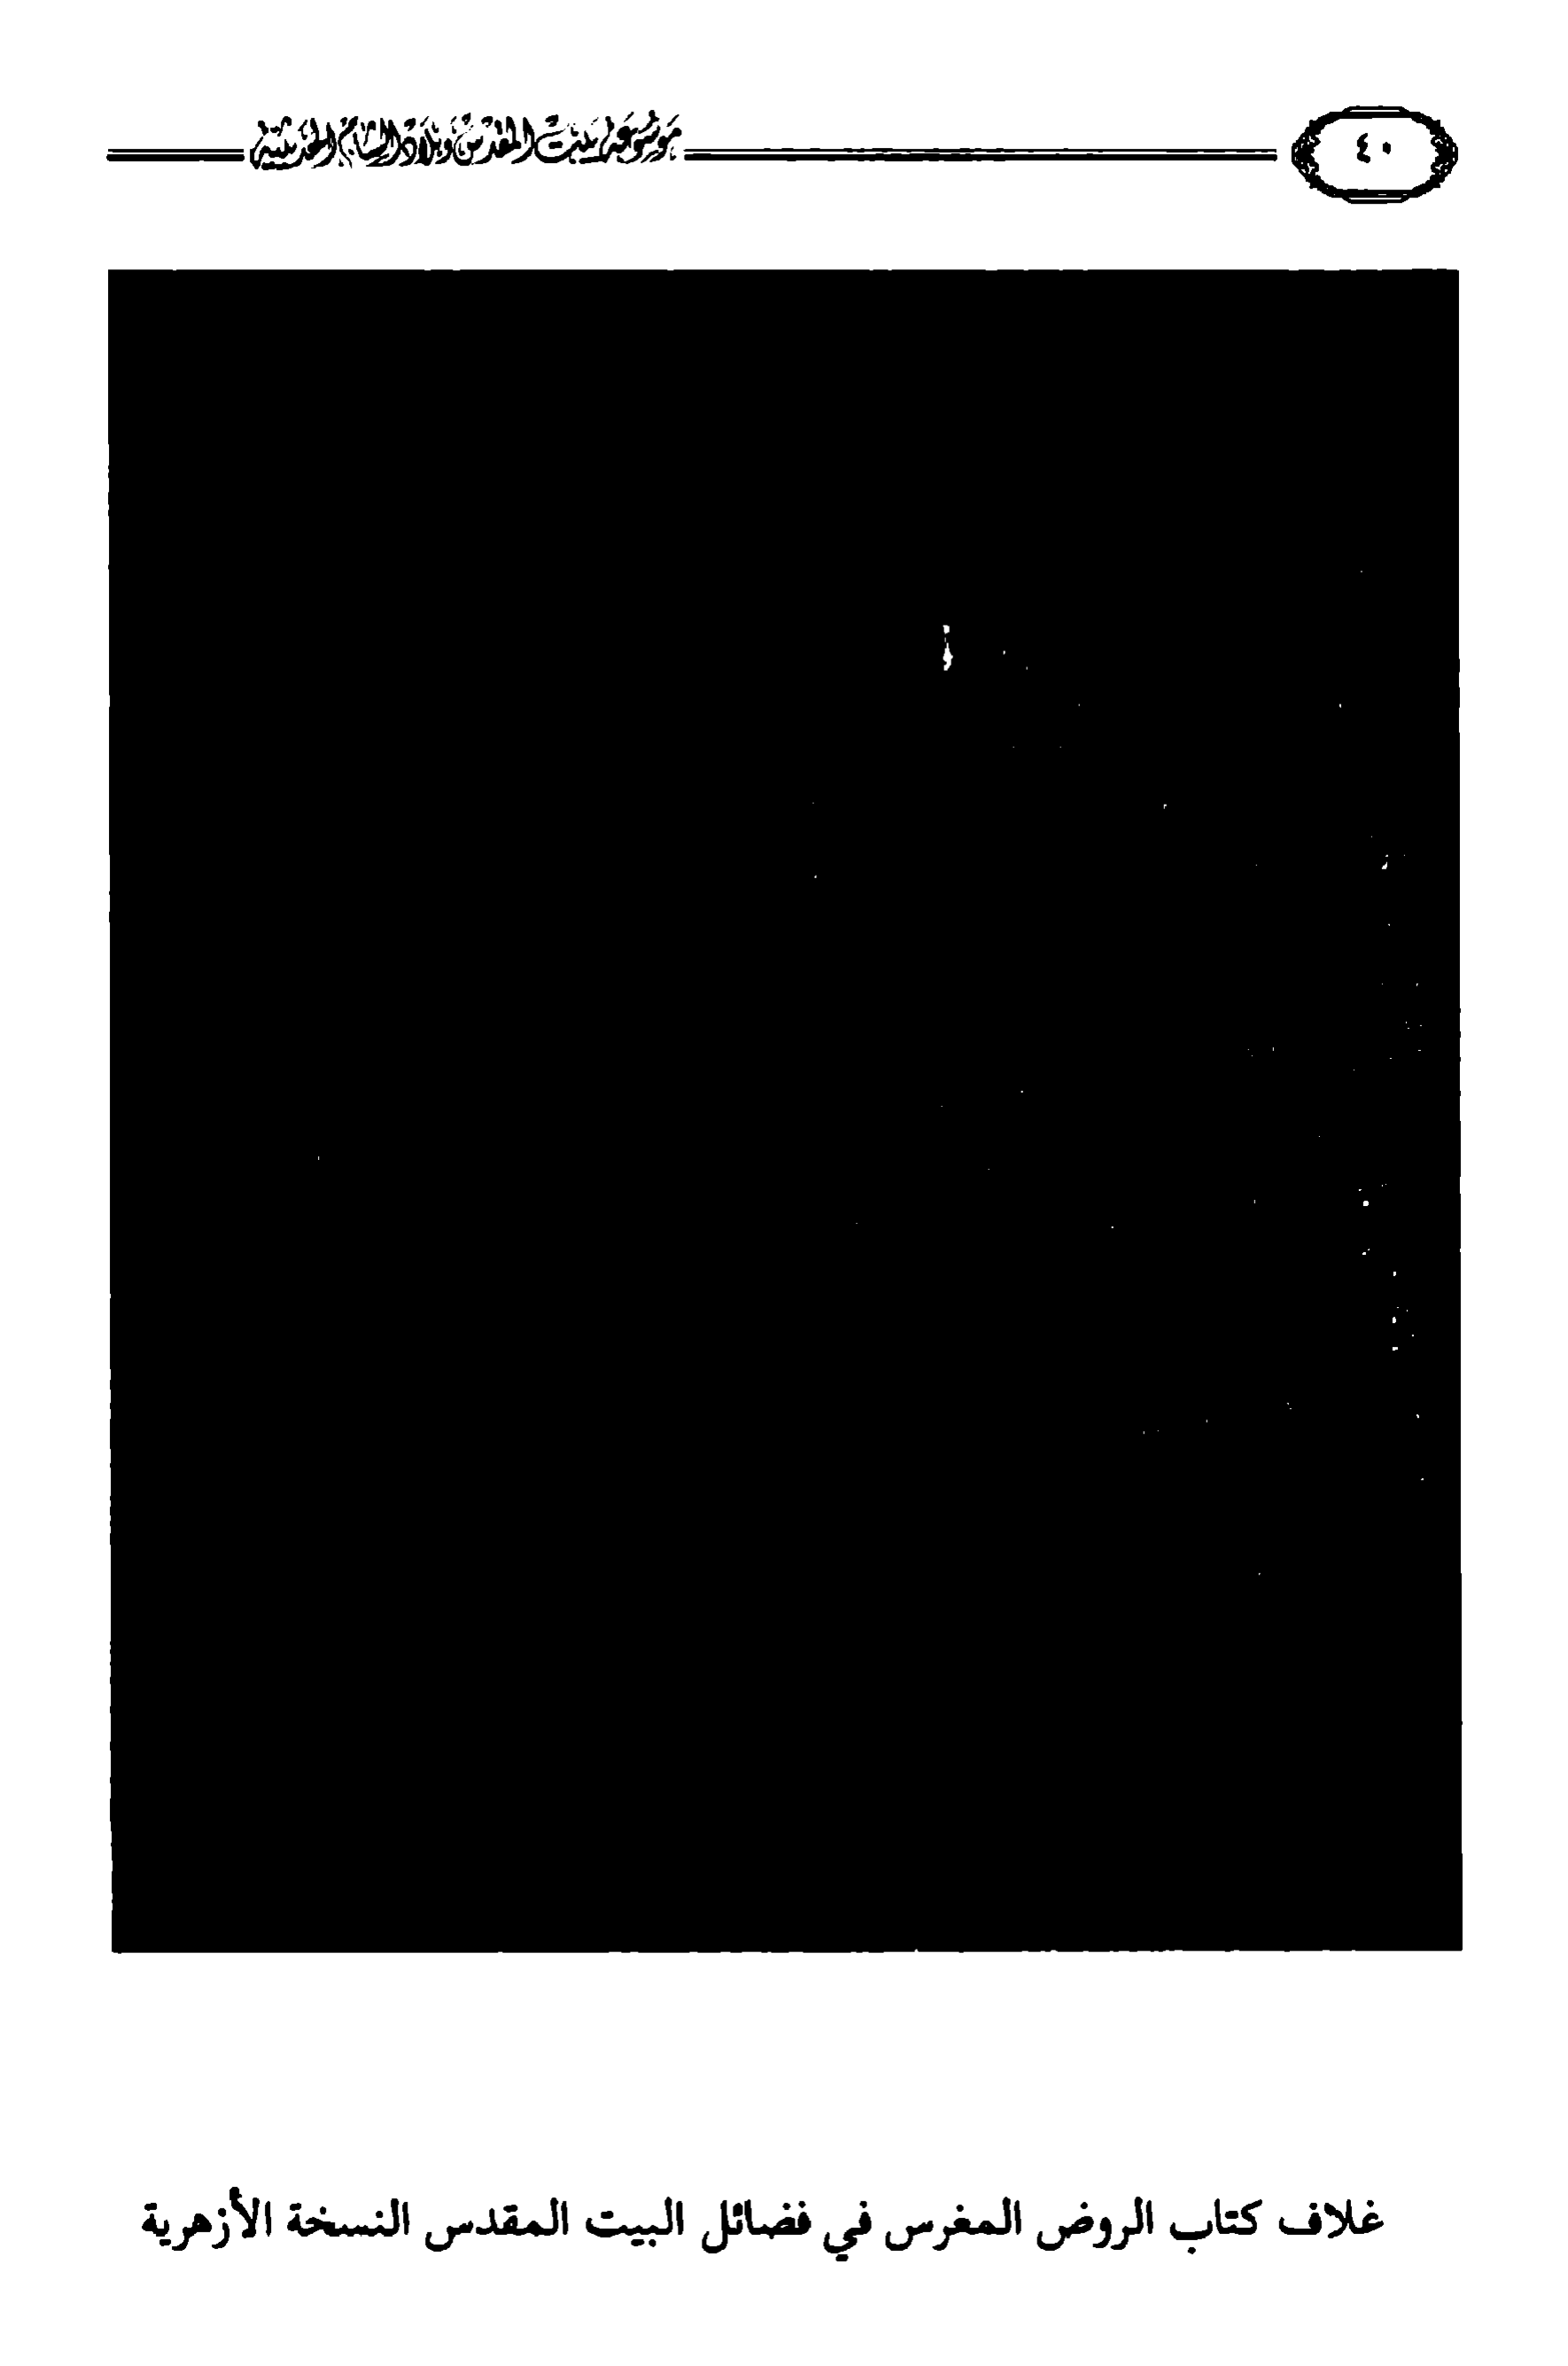 ٤٠
موسوعة بيت المقدس وبلاد الشام الحديثية
غلاف كتاب الروض المغرس في فضائل البيت المقدس النسخة الأزهرية